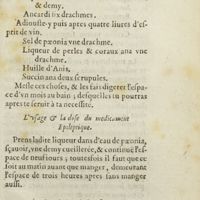 & demy.
Ancardi six drachmes,
Adioustez y puis apres quatre liures d'es-
prit de vin.
Sel de pæonia vne drachme.
Liqueur de perles & coraux ana vne
drachme.
Huille d'Anis,
Succin ana deux scrupules.
Meslez ces choses, & les fais digerer l'espa-
ce d'vn mois au bain, desquelles tu pourras
apres te seruir à ta necessité.
L'vsage & la dose du medicament
Epileptique.
Prens ladite liqueur dans d'eau de pæonia,
sçauoir, vne demy cueillerée, & continuë l'es-
pace de neuf iours ; toutesfois il faut que ce
soit au matin auant que manger, demeurans
l'espace de trois heures apres sans manger
aussi.